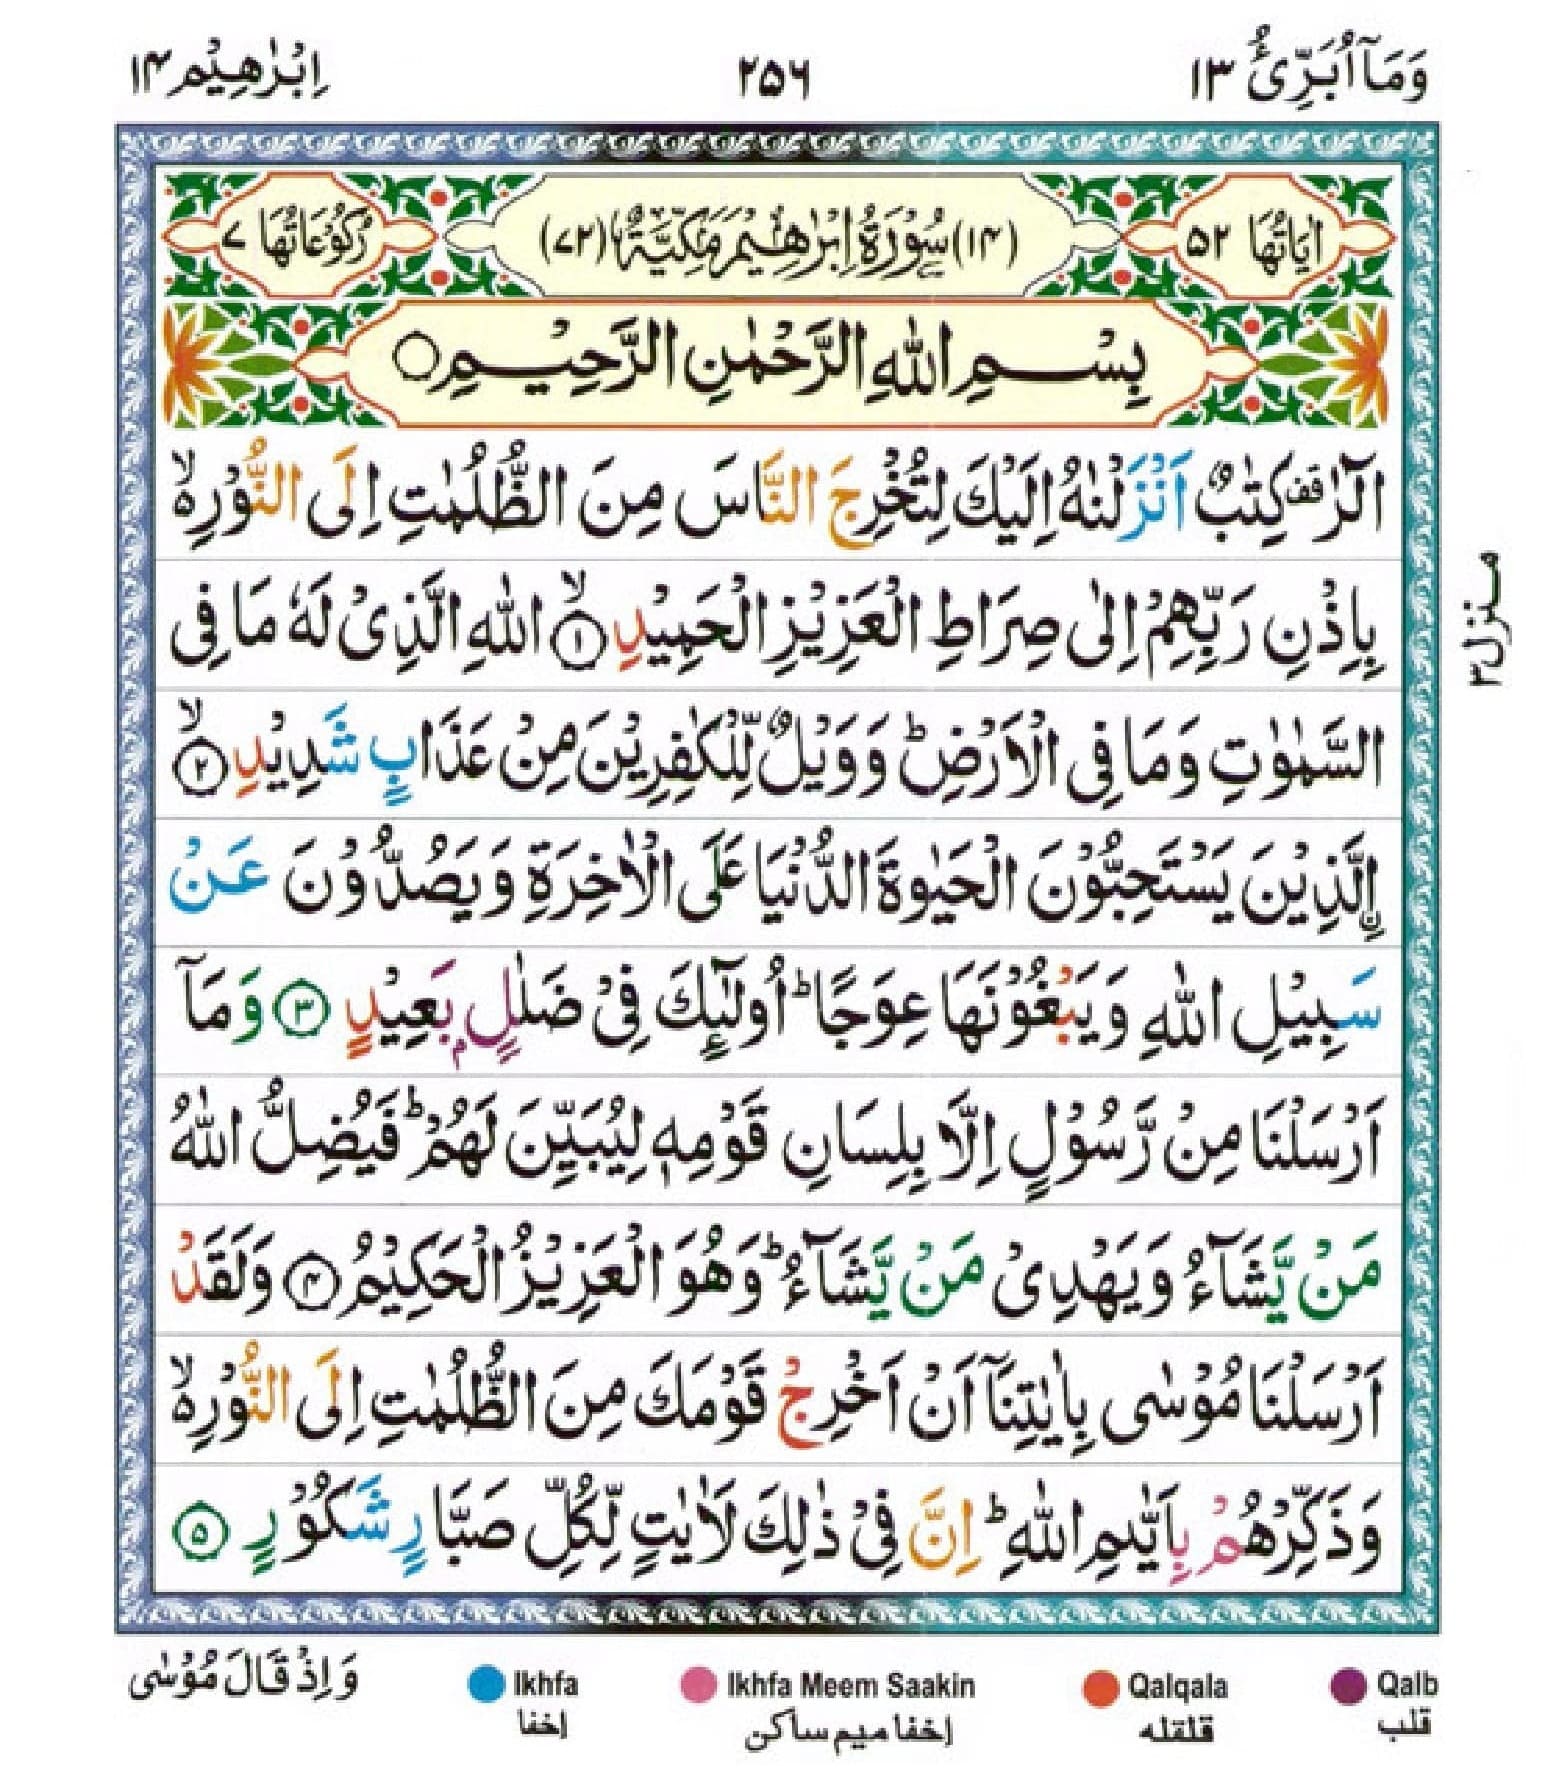 وَمَآ اُبَرِّئُ ١٣
٢٥٦
اِبْرٰهِيْم ١٤
اٰيَاتُهَا ٥٢
(١٤) سُوْرَةُ اِبْرٰهِيْمَ مَكِّيَّةٌ (٧٢)
رُكُوْعَاتُهَا ٧
بِسْمِ اللّٰهِ الرَّحْمٰنِ الرَّحِيْمِ ○
الٓرٰ قف كِتٰبٌ اَنْزَلْنٰهُ اِلَيْكَ لِتُخْرِجَ النَّاسَ مِنَ الظُّلُمٰتِ اِلَى النُّوْرِ ۙ۬
بِاِذْنِ رَبِّهِمْ اِلٰى صِرَاطِ الْعَزِيْزِ الْحَمِيْدِ ۙ ١ اللّٰهِ الَّذِىْ لَهٗ مَا فِى
السَّمٰوٰتِ وَمَا فِى الْاَرْضِ ؕ وَوَيْلٌ لِّلْكٰفِرِيْنَ مِنْ عَذَابٍ شَدِيْدِ ۙ ٢
اِۨلَّذِيْنَ يَسْتَحِبُّوْنَ الْحَيٰوةَ الدُّنْيَا عَلَى الْاٰخِرَةِ وَيَصُدُّوْنَ عَنْ
سَبِيْلِ اللّٰهِ وَيَبْغُوْنَهَا عِوَجًا ؕ اُولٰٓئِكَ فِىْ ضَلٰلٍۭ بَعِيْدٍ ٣ وَمَآ
اَرْسَلْنَا مِنْ رَّسُوْلٍ اِلَّا بِلِسَانِ قَوْمِهٖ لِيُبَيِّنَ لَهُمْ ؕ فَيُضِلُّ اللّٰهُ
مَنْ يَّشَآءُ وَيَهْدِىْ مَنْ يَّشَآءُ ؕ وَهُوَ الْعَزِيْزُ الْحَكِيْمُ ٤ وَلَقَدْ
اَرْسَلْنَا مُوْسٰى بِاٰيٰتِنَآ اَنْ اَخْرِجْ قَوْمَكَ مِنَ الظُّلُمٰتِ اِلَى النُّوْرِ ۙ۬
وَذَكِّرْهُمْ بِاَيّٰٮمِ اللّٰهِ ؕ اِنَّ فِىْ ذٰلِكَ لَاٰيٰتٍ لِّكُلِّ صَبَّارٍ شَكُوْرٍ ٥
منزل ٣
وَاِذْ قَالَ مُوْسٰى
Ikhfa
إخفا
Ikhfa Meem Saakin
إخفا ميم ساكن
Qalqala
قلقله
Qalb
قلب